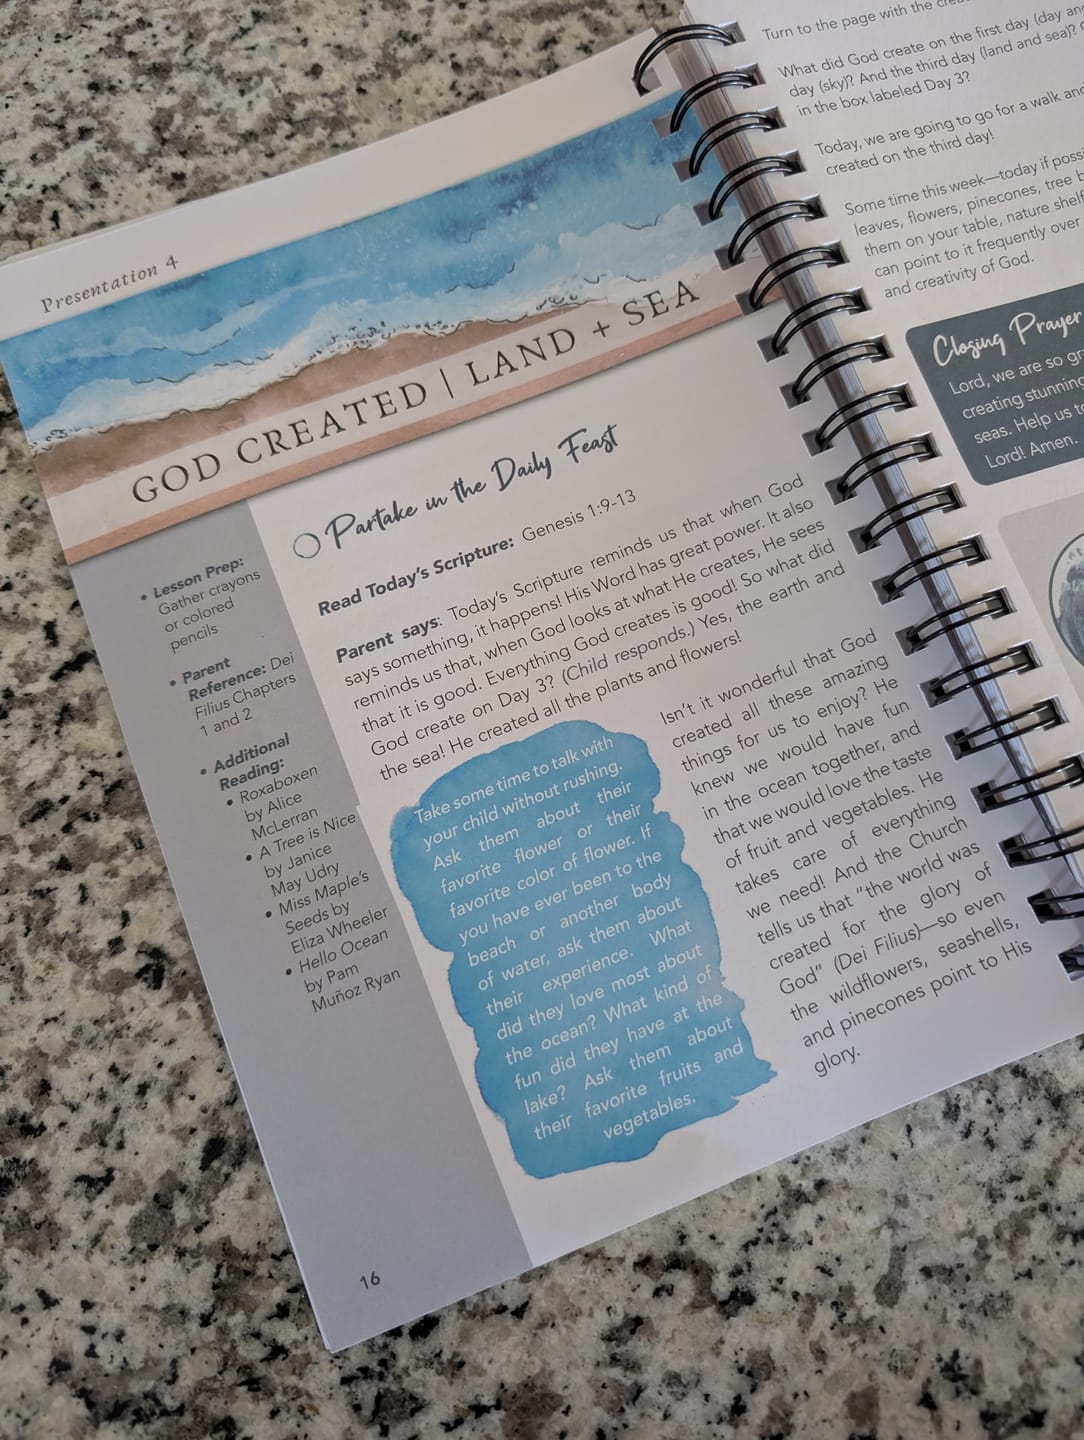 Presentation 4
GOD CREATED | LAND + SEA
Partake in the Daily Feast
Read Today's Scripture: Genesis 1:9-13
Parent says: Today's Scripture reminds us that when God
says something, it happens! His Word has great power. It also
reminds us that, when God looks at what He creates, He sees
that it is good. Everything God creates is good! So what did
God create on Day 3? (Child responds.) Yes, the earth and
the sea! He created all the plants and flowers!
• Lesson Prep:
Gather crayons
or colored
pencils
• Parent
Reference: Dei
Filius Chapters
1 and 2
• Additional
Reading:
• Roxaboxen
by Alice
McLerran
• A Tree is Nice
by Janice
May Udry
• Miss Maple's
Seeds by
Eliza Wheeler
• Hello Ocean
by Pam
Muñoz Ryan
Take some time to talk with
your child without rushing.
Ask them about their
favorite flower or their
favorite color of flower. If
you have ever been to the
beach or another body
of water, ask them about
their experience. What
did they love most about
the ocean? What kind of
fun did they have at the
lake? Ask them about
their favorite fruits and
vegetables.
Isn't it wonderful that God
created all these amazing
things for us to enjoy? He
knew we would have fun
in the ocean together, and
that we would love the taste
of fruit and vegetables. He
takes care of everything
we need! And the Church
tells us that "the world was
created for the glory of
God" (Dei Filius)—so even
the wildflowers, seashells,
and pinecones point to His
glory.
16
Turn to the page with the
What did God create on the first day (day
day (sky)? And the third day (land and sea)?
in the box labeled Day 3?
Today, we are going to go for a walk
created on the third day!
Some time this week—today if
leaves, flowers, pinecones, tree
them on your table, nature
can point to it frequently over
and creativity of God.
Closing Prayer
Lord, we are so
creating stunning
seas. Help us
Lord! Amen.